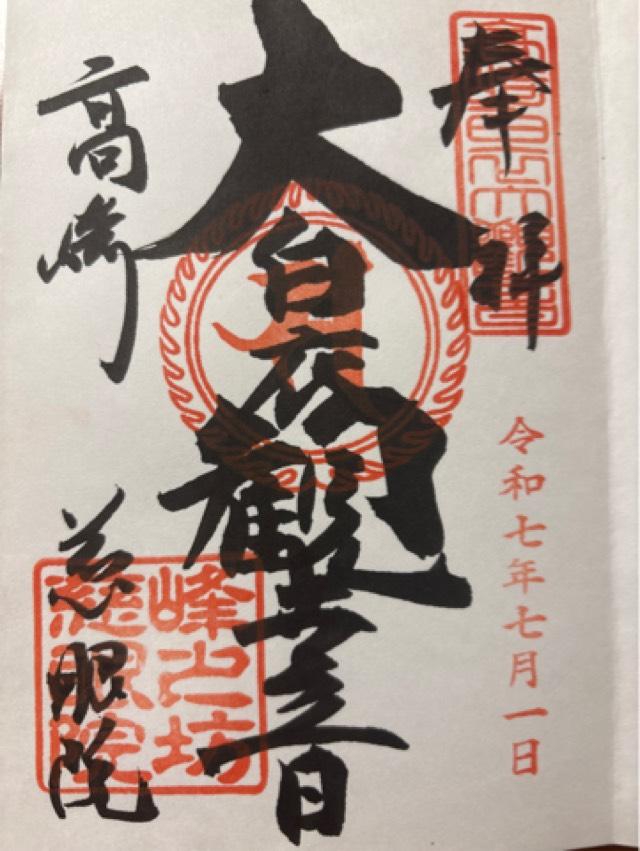 奉拝
令和七年七月一日
大白衣観世音
高崎
慈眼院
峰之坊
慈眼院